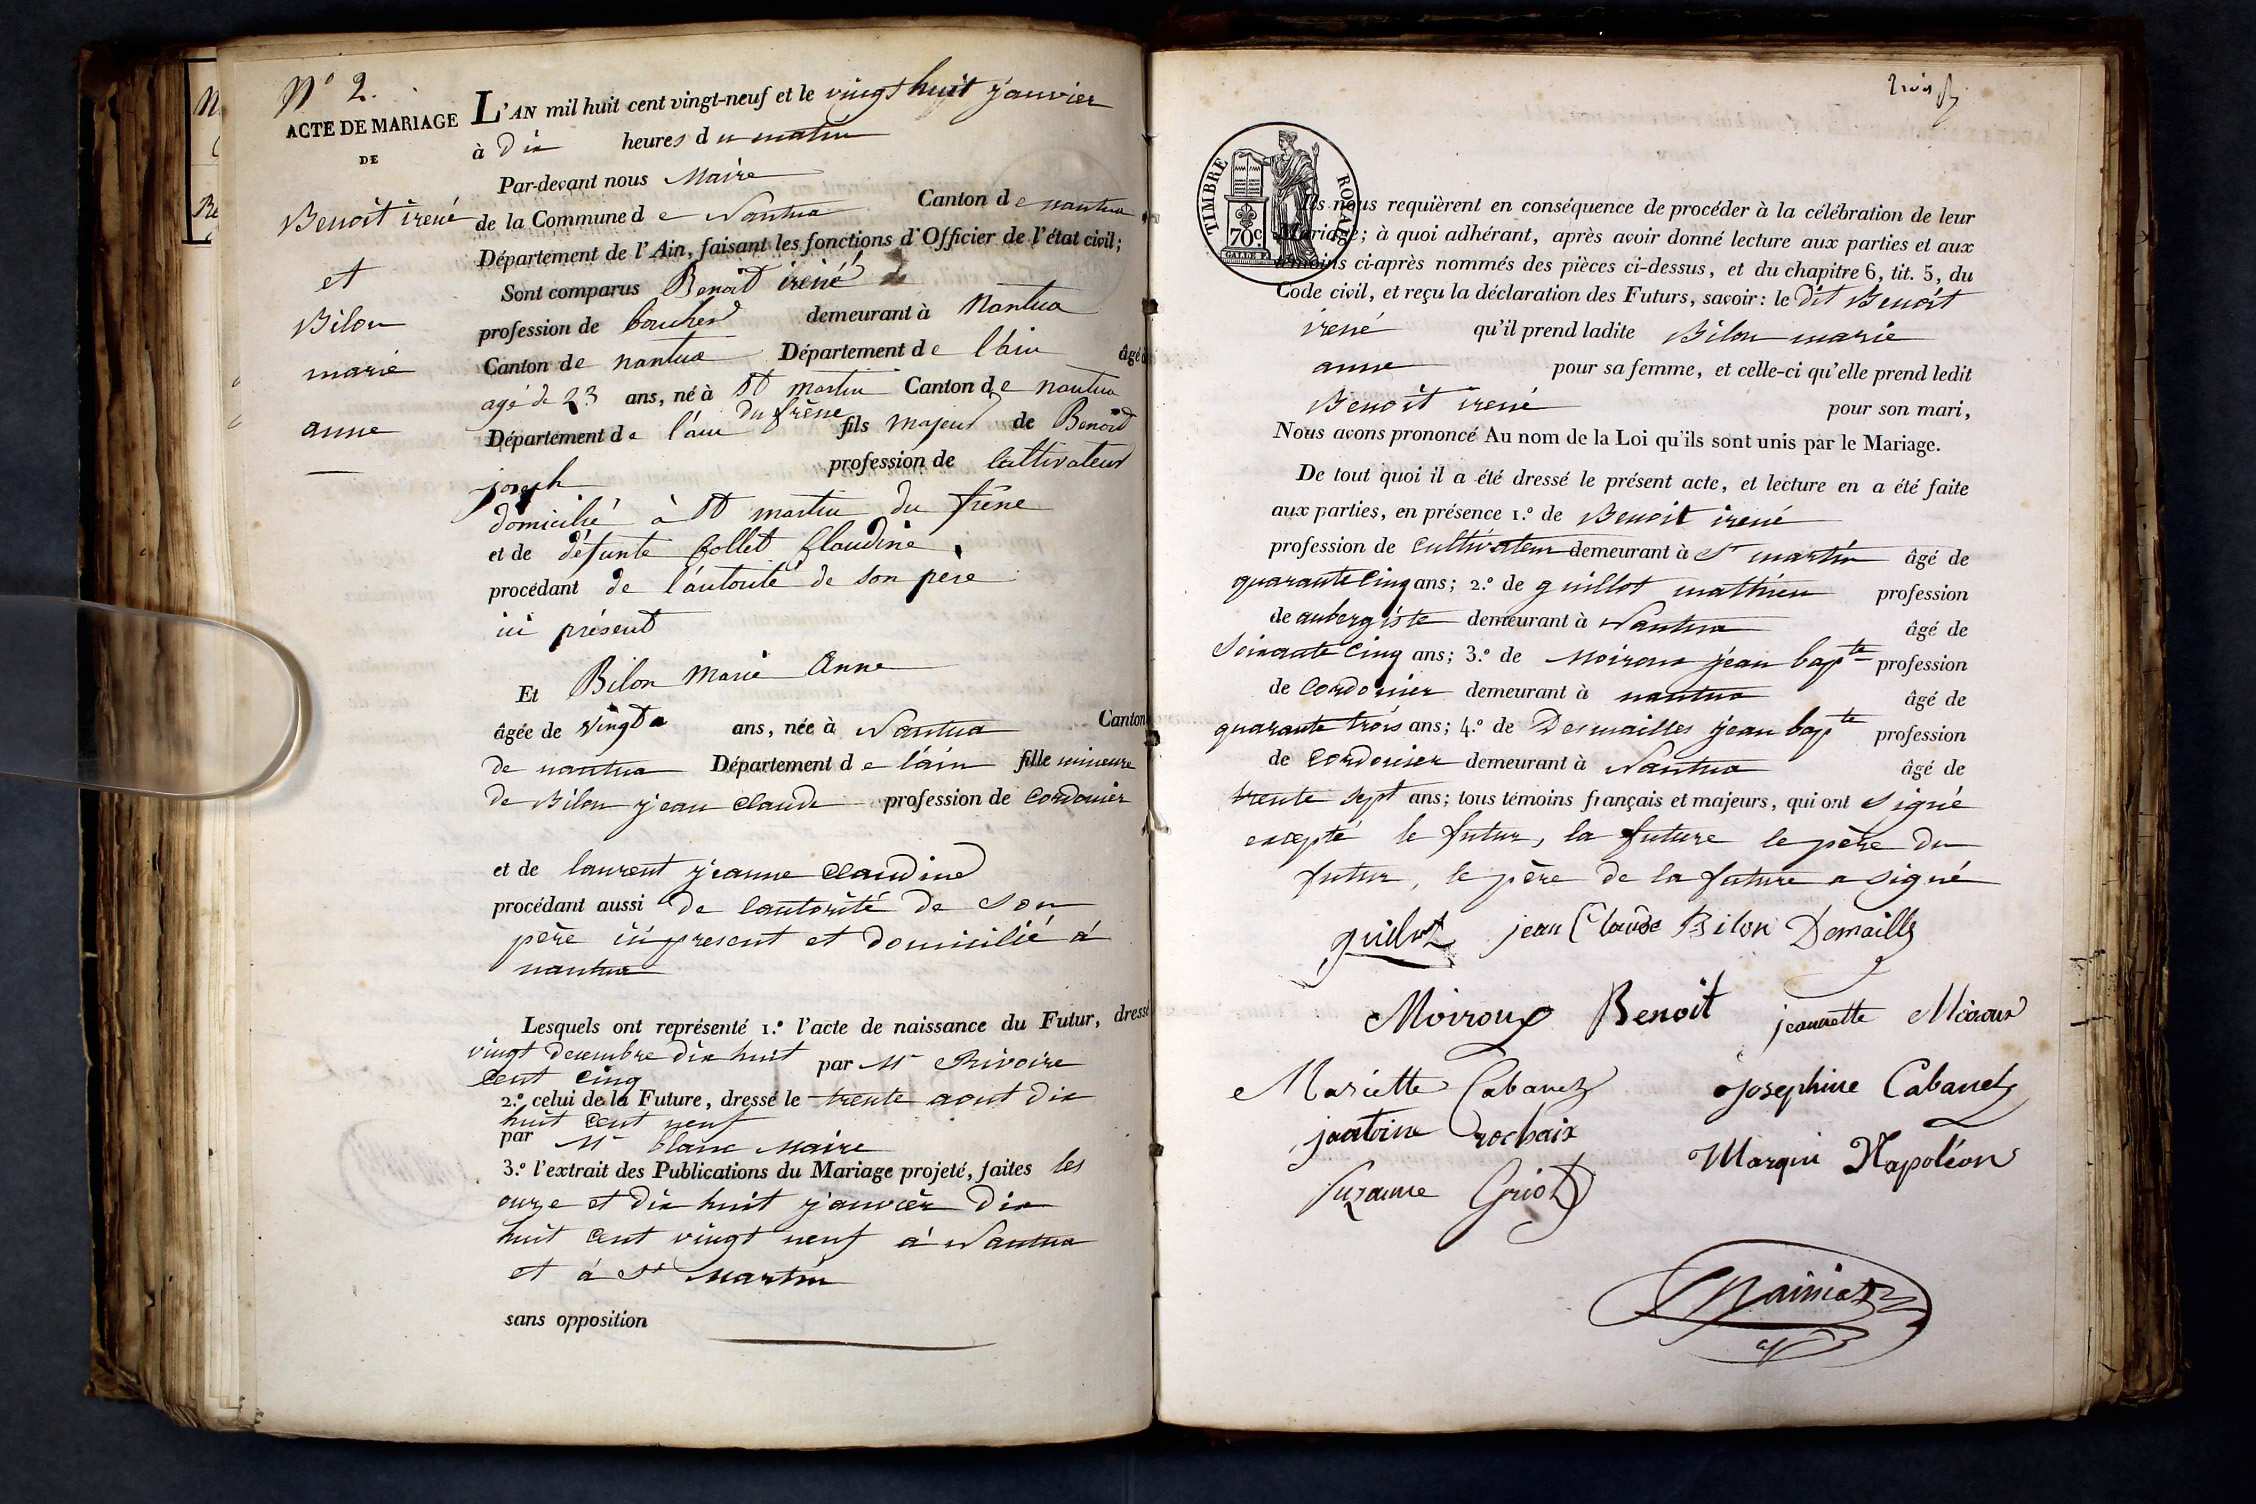 N° 2.
ACTE DE MARIAGE
DE
Benoît irené
et
Bilon
marie
anne
L'AN mil huit cent vingt-neuf et le vingt huit janvier
à dix heures du matin
Par-devant nous Maire
de la Commune de Nantua Canton de nantua
Département de l'Ain, faisant les fonctions d'Officier de l'état civil;
Sont comparus Benoît irené
profession de boucher demeurant à Nantua
Canton de nantua Département de l'ain âgé
agé de 23 ans, né à St martin Canton de nantua
du frêne
Département de l'ain fils majeur de Benoid
joseph profession de Cultivateur
domicilié à St martin du frêne
et de défunte Collet Claudine
procédant de l'autorité de son père
ici présent
Et Bilon Marie Anne
âgée de vingt ans, née à Nantua Canton
de nantua Département de l'ain fille mineure
de Bilon jean claude profession de Cordonier
et de laurent jeanne claudine
procédant aussi de l'autorité de son
père ici present et domicilié à
nantua
Lesquels ont représenté 1.° l'acte de naissance du Futur, dressé
vingt decembre dix huit par Mr Rivoire
cent cinq
2.° celui de la Future, dressé le trente aout dix
huit cent neuf
par Mr blanc Maire
3.° l'extrait des Publications du Mariage projeté, faites les
onze et dix huit janvier dix
huit cent vingt neuf à Nantua
et à St Martin
sans opposition
trois
TIMBRE ROYAL
70c
Ils nous requièrent en conséquence de procéder à la célébration de leur
Mariage; à quoi adhérant, après avoir donné lecture aux parties et aux
témoins ci-après nommés des pièces ci-dessus, et du chapitre 6, tit. 5, du
Code civil, et reçu la déclaration des Futurs, savoir: le dit Benoît
irené qu'il prend ladite Bilon marie
anne pour sa femme, et celle-ci qu'elle prend ledit
Benoît irené pour son mari,
Nous avons prononcé Au nom de la Loi qu'ils sont unis par le Mariage.
De tout quoi il a été dressé le présent acte, et lecture en a été faite
aux parties, en présence 1.° de Benoit irené
profession de Cultivateur demeurant à St martin âgé de
quarante Cinq ans; 2.° de guillot mathieu profession
de aubergiste demeurant à Nantua âgé de
Soixante Cinq ans; 3.° de Moiroux jean bapte profession
de Cordonier demeurant à nantua âgé de
quarante trois ans; 4.° de Desmailles jean bapte profession
de Cordonier demeurant à Nantua âgé de
trente sept ans; tous témoins français et majeurs, qui ont signé
excepté le futur, la future le père du
futur, le père de la future a signé
guillot jean Claude Bilon Demailles
Moiroux Benoit jeannette Moiroux
Mariette Cabanet Josephine Cabanet
jantoine rochaix Marqui Napoléon
Suzanne Griot